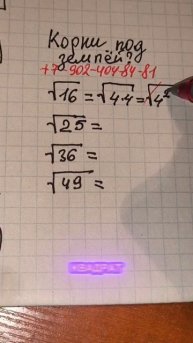 Корни под
землёй?
+7-902-404-84-81
√16 = √4·4 = √4²
√25 =
√36 =
√49 =
КВАДРАТ